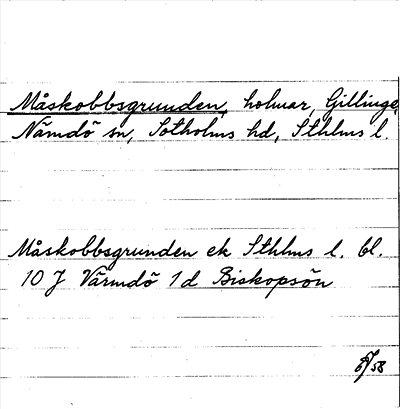 Måskobbsgrunden, holmar, Gillinge,
Nämdö sn, Sotholms hd, Sthlms l.
Måskobbsgrunden ek Sthlms l. bl.
10 J Värmdö 1 d Biskopsön
58